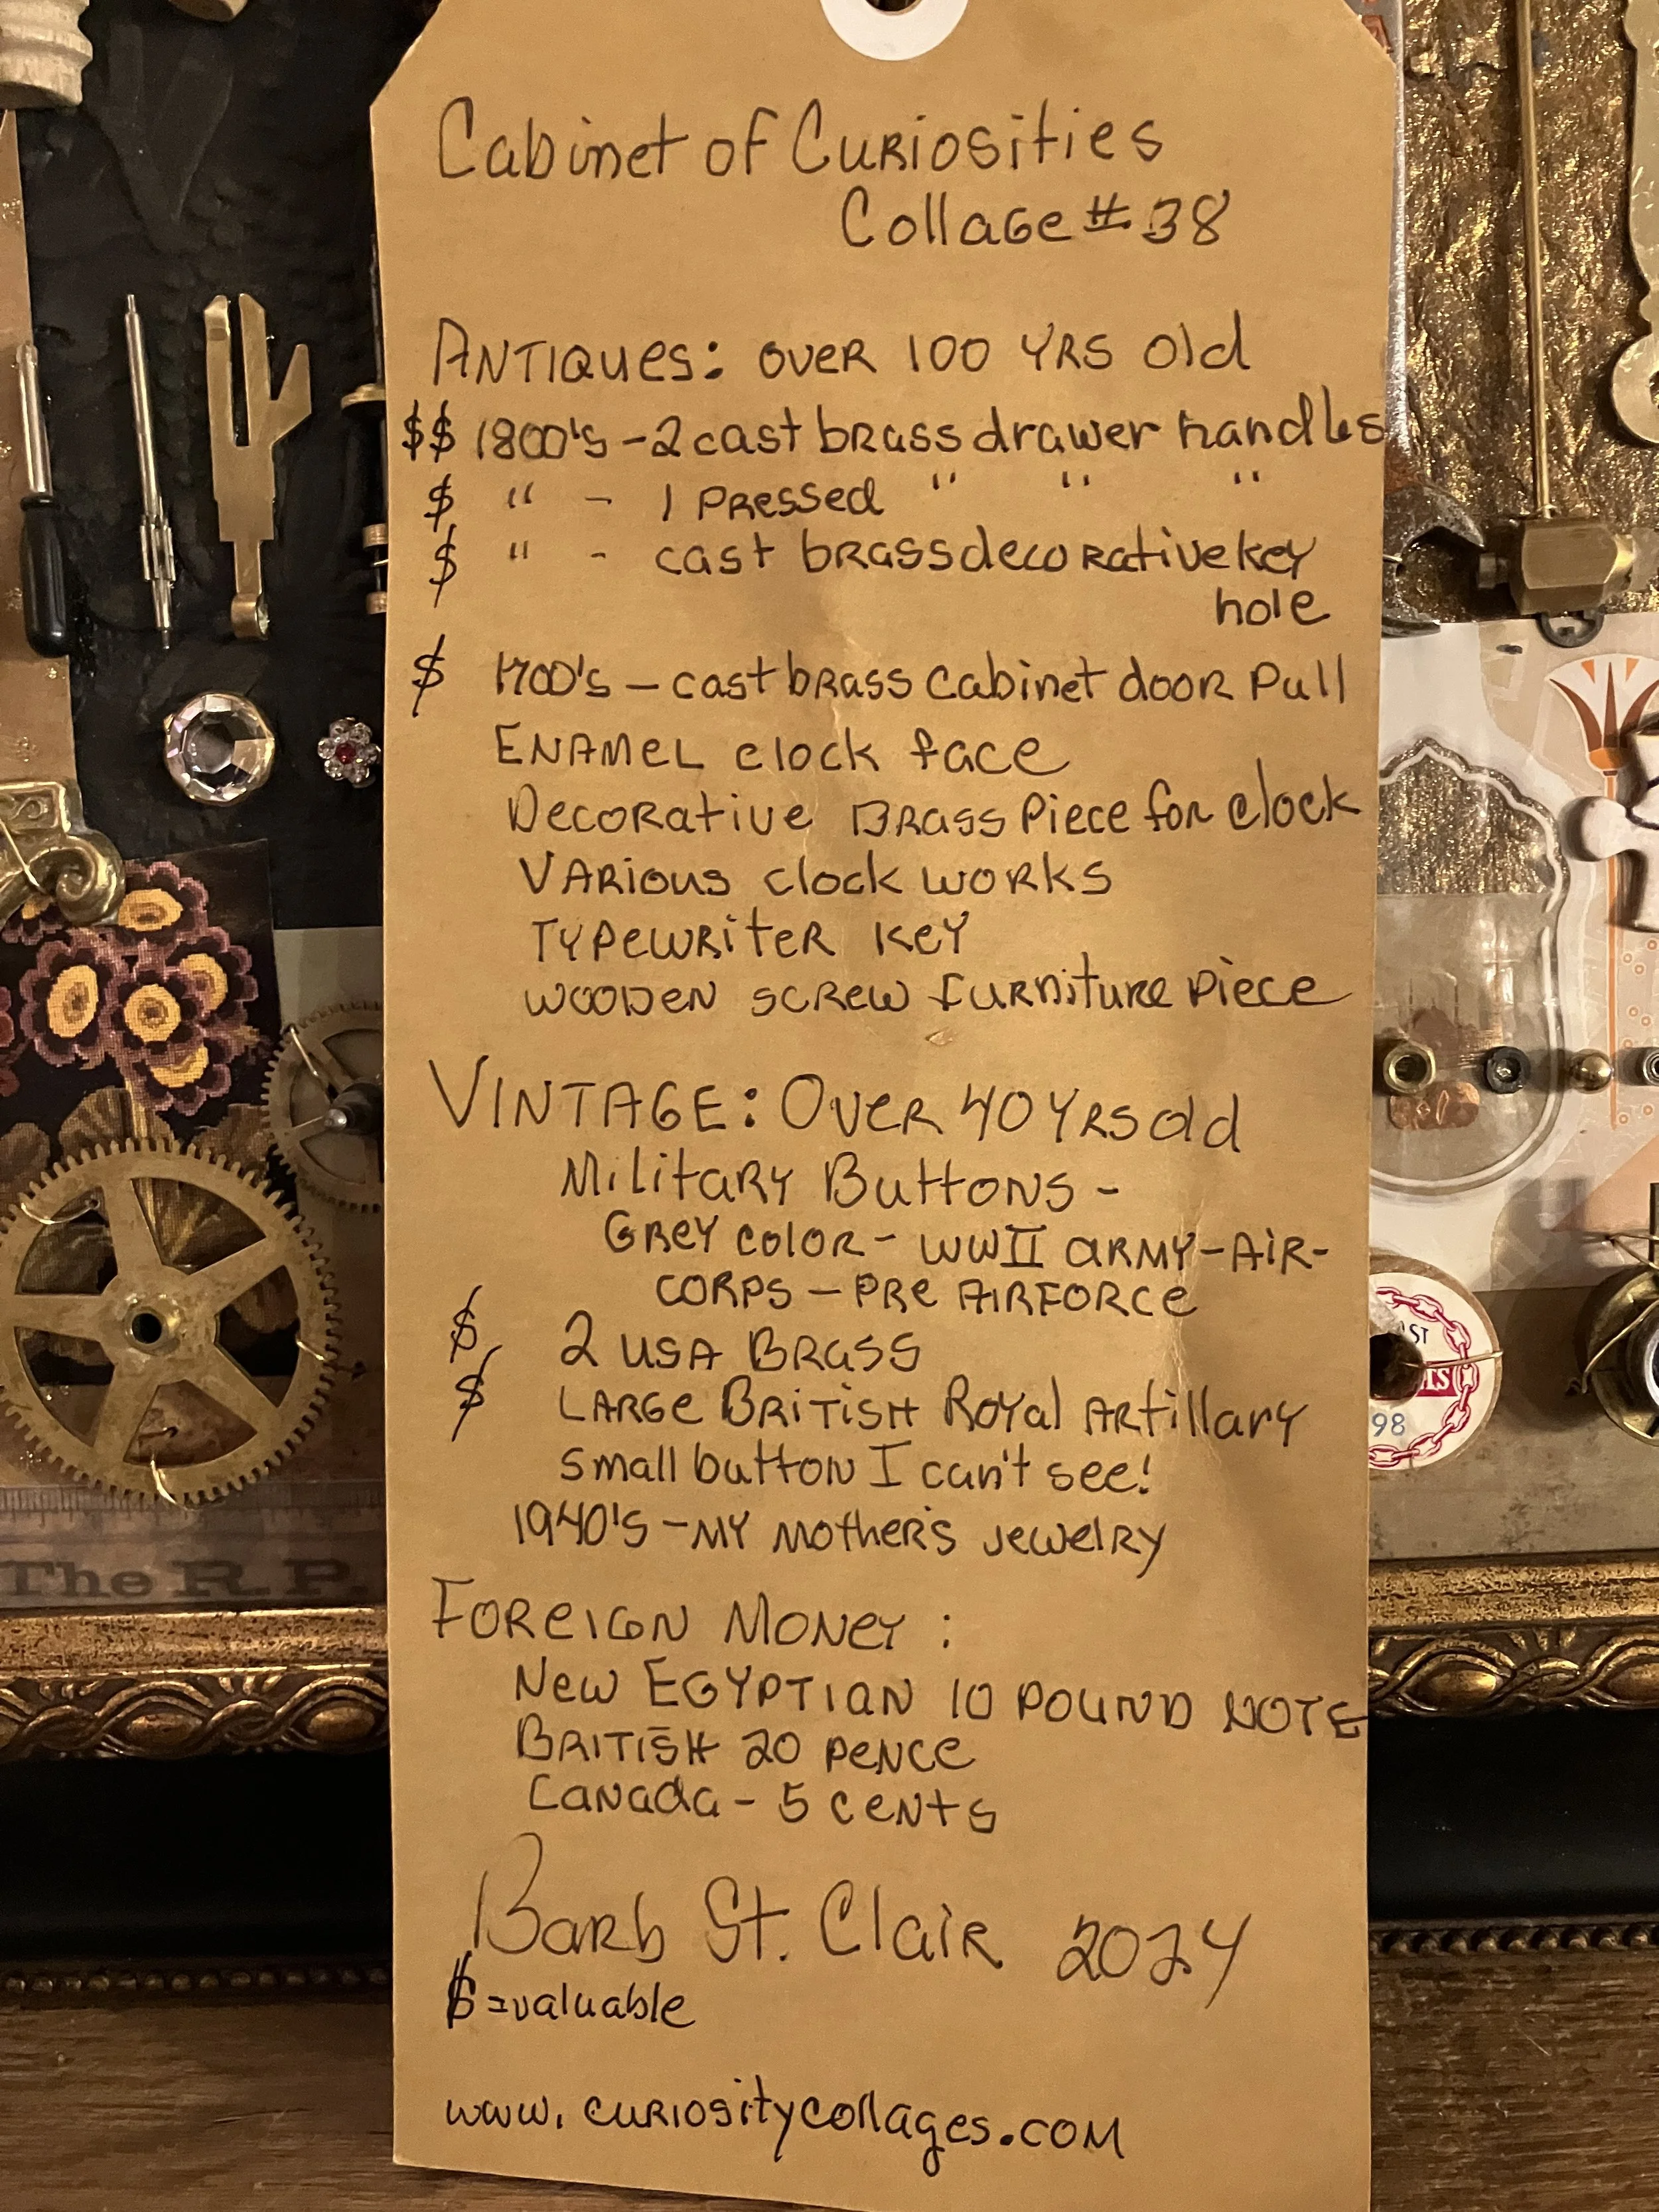 Cabinet of Curiosities
Collage #38
Antiques: over 100 yrs old
$$ 1800's - 2 cast brass drawer handles
$ " - 1 Pressed " " "
$ " - cast brass decorative key
hole
$ 1700's - cast brass cabinet door pull
Enamel clock face
Decorative Brass Piece for clock
Various clock works
Typewriter key
Wooden screw furniture piece
Vintage: Over 40 yrs old
Military Buttons -
Grey color - WWII army - Air-
corps - pre Airforce
$ 2 USA Brass
$ Large British Royal Artillary
Small button I can't see!
1940's - My Mother's jewelry
Foreign Money:
New Egyptian 10 Pound Note
British 20 pence
Canada - 5 cents
Barb St. Clair 2024
$ = valuable
www.curiositycollages.com
The R.P.
98